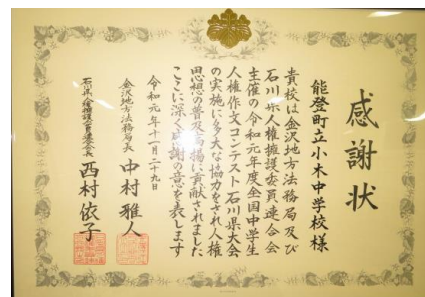 感謝状
能登町立小木中学校様
貴校は金沢地方法務局及び
石川県人権擁護委員連合会
主催の令和元年度全国中学生
人権作文コンテスト石川県大会
の実施に多大な協力をされ人権
思想の普及高揚に貢献されました
ここに深く感謝の意を表します
令和元年十一月二十九日
金沢地方法務局長 中村雅人
石川県人権擁護委員連合会長 西村依子